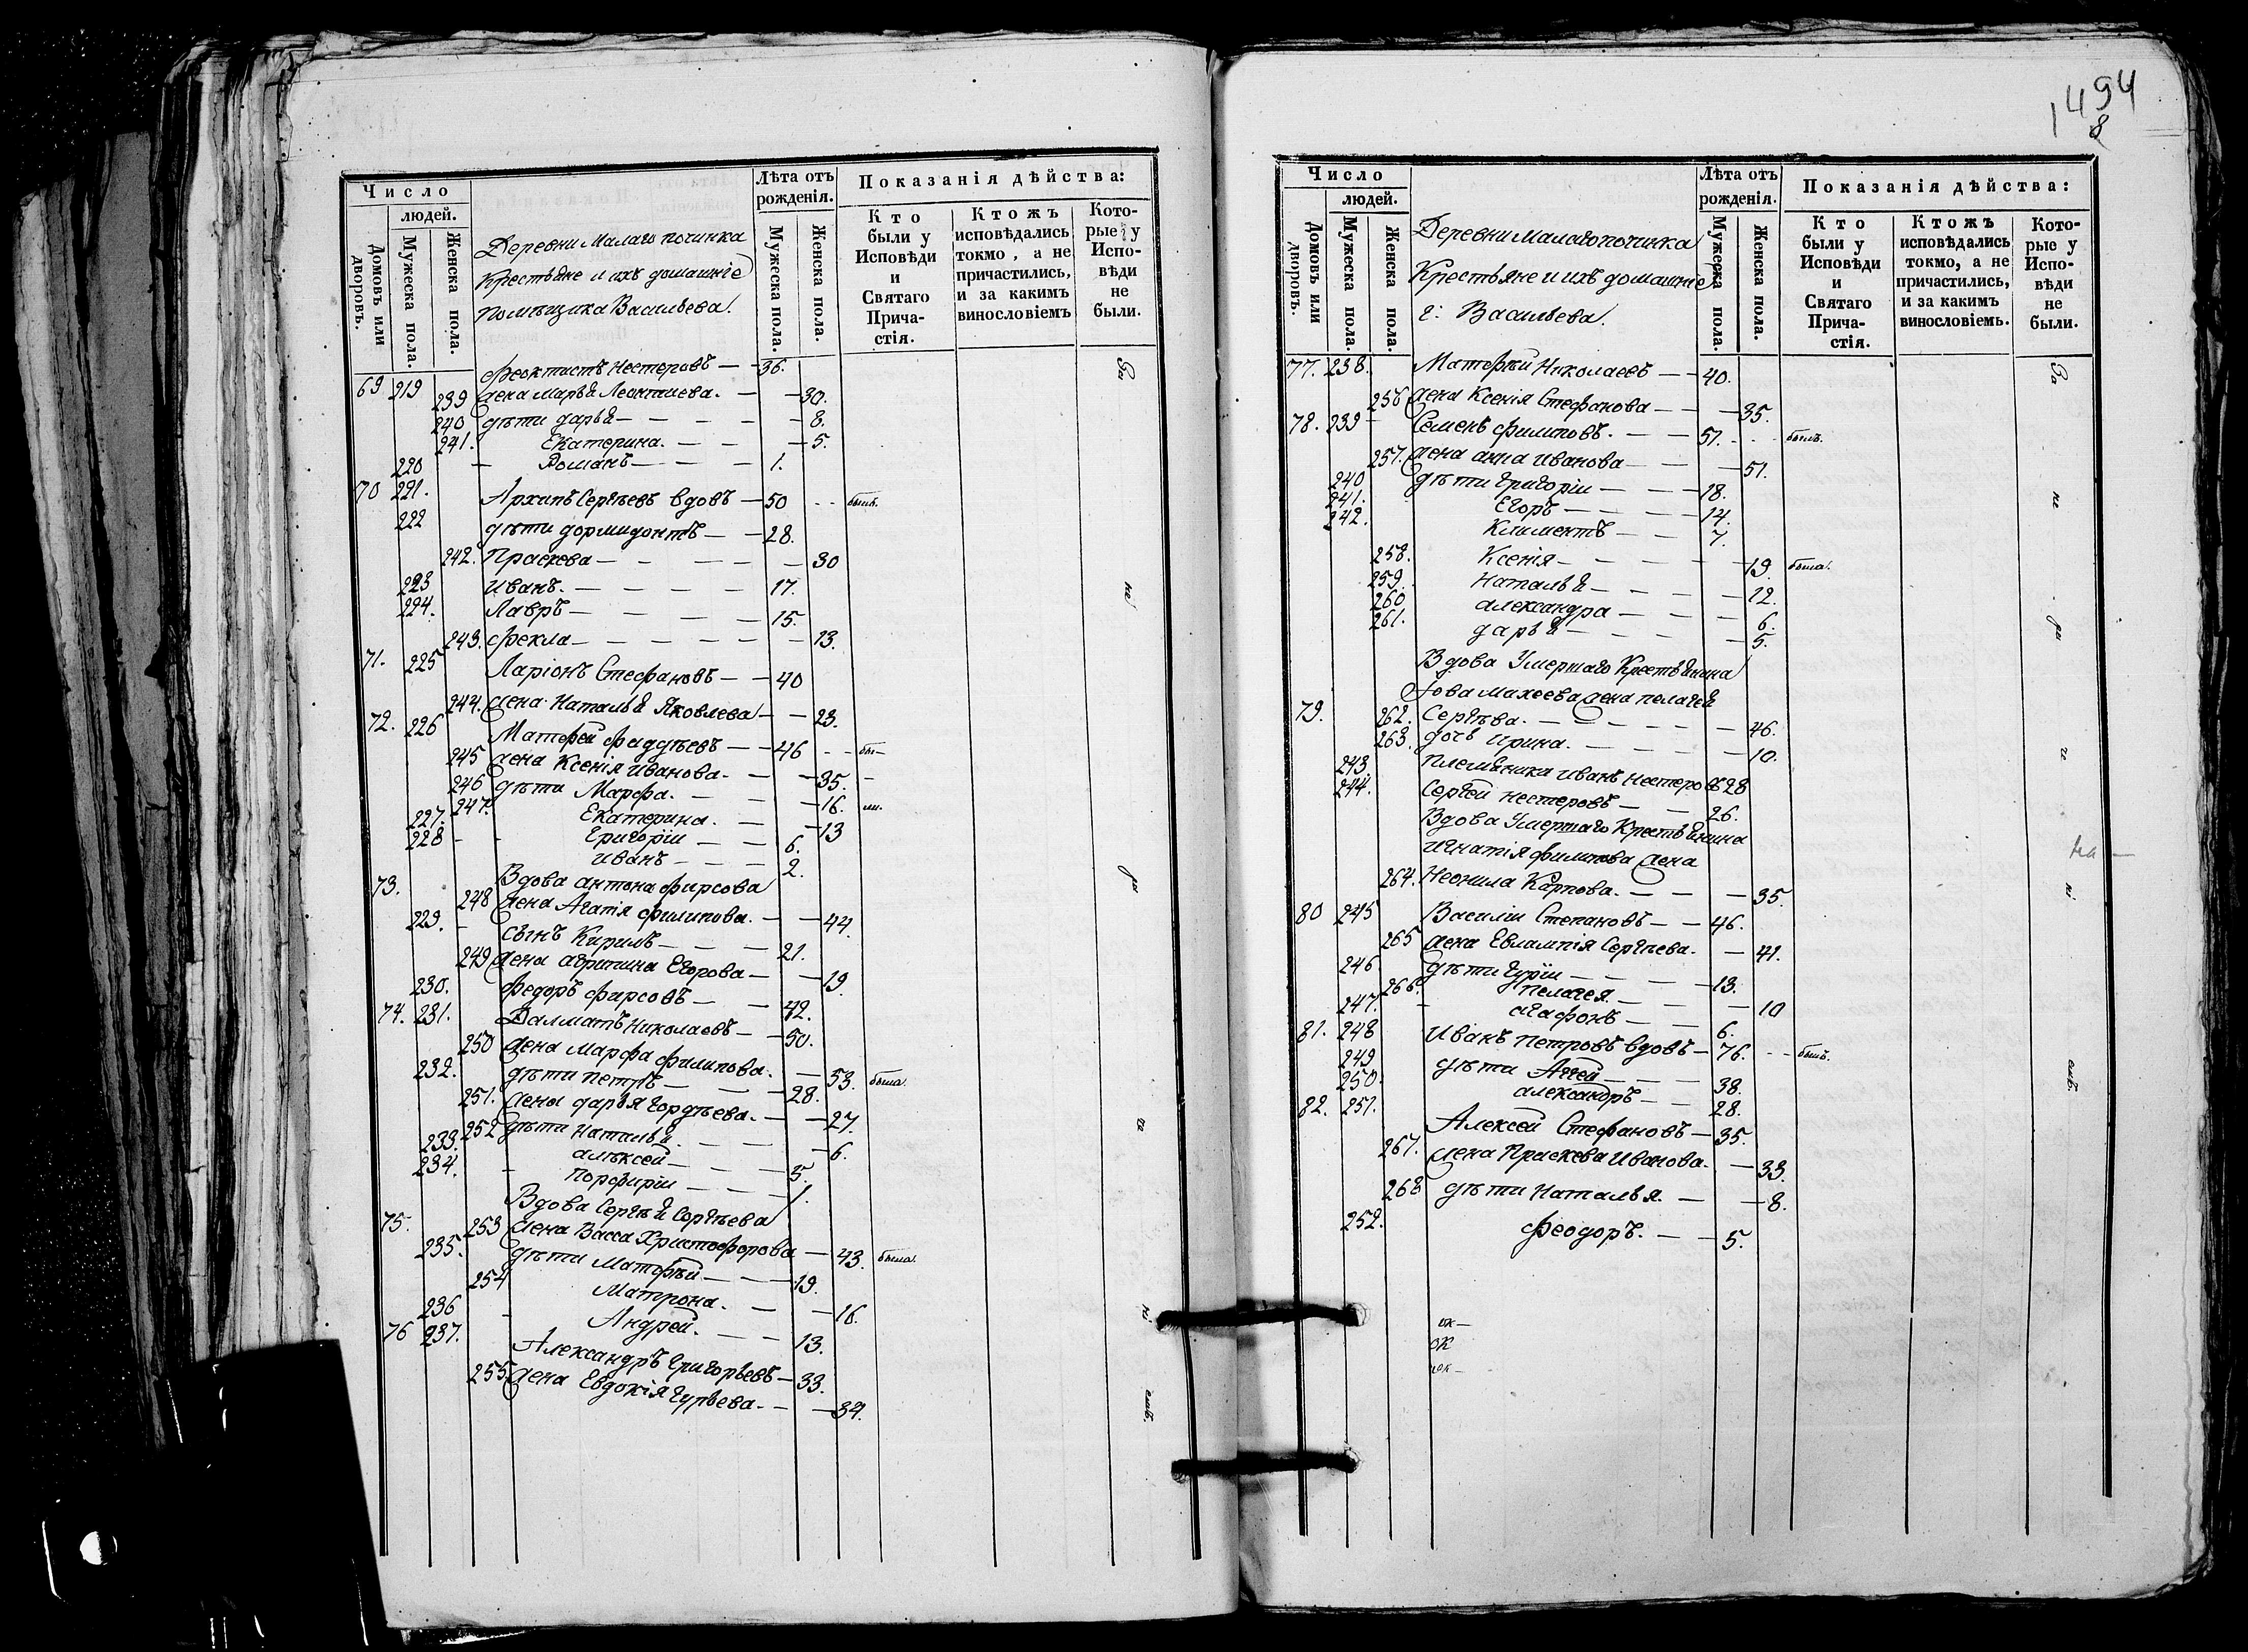 Число
людей.
Домовъ или дворовъ.
Мужеска пола.
Женска пола.
Деревни Малаго починка
Крестьяне и ихъ домашніе
помѣщика Васильева.
Лѣта отъ
рожденія.
Мужеска пола.
Женска пола.
Показанія дѣйства:
Кто
были у
Исповѣди
и
Святаго
Прича-
стія.
Ктожъ
исповѣдались
токмо, а не
причастились,
и за какимъ
винословіемъ
Кото-
рые у
Испо-
вѣди
не
были.
69 219 Феоктистъ Нестеровъ — 36.
239 жена Марья Леонтиева. — 30.
240 дѣти Дарья — 8.
241. Екатерина. — 5.
220 Романъ — 1.
70 221. Архипъ Сергѣевъ вдовъ — 50 былъ.
222 дѣти Дормидонтъ — 28.
242. Праскева — 30
223 Иванъ. — 17.
224. Лавръ — 15.
243. Фекла — 13.
71. 225 Ларіонъ Стефановъ — 40
244. жена Наталья Яковлева — 23.
72. 226 Матфей Фаддѣевъ — 46 бы—
245 жена Ксенія Иванова. — 35. —
246 дѣти Марфа. — 16. ли.
247. Екатерина. — 13
227. Григоріи — 6.
228 Иванъ — 2.
73. Вдова Антона Фирсова
248 жена Агапія Филипова. — 44.
229. сынъ Кирилъ — 21.
249 жена Агрипина Егорова — 19.
230. Федоръ Фирсовъ — 42.
74. 231. Далматъ Николаевъ — 50.
250 жена Марфа Филипова. — 53. была.
232. дѣти Петръ — 28.
251. жена Дарья Гордѣева. — 27.
252 дѣти Наталья. — 6.
233. Алѣксей — 5.
234. Порфиріи — 1.
75. Вдова Сергѣя Сергѣева
253 жена Васса Христофорова — 43. была.
235. дѣти Матфѣй — 19.
254 Матрона. — 16.
236 Андрей. — 13.
76 237. Александръ Григорьевъ — 33.
255 жена Евдокія Гурьева. — 34.
За
не
ра
че
ні
емъ.
1494
8
Число
людей.
Домовъ или дворовъ.
Мужеска пола.
Женска пола.
Деревни Малаго починка
Крестьяне и ихъ домашніе
г: Васильева.
Лѣта отъ
рожденія.
Мужеска пола.
Женска пола.
Показанія дѣйства:
Кто
были у
Исповѣди
и
Святаго
Прича-
стія.
Ктожъ
исповѣдались
токмо, а не
причастились,
и за какимъ
винословіемъ.
Кото-
рые у
Испо-
вѣди
не
были.
77. 238. Матфѣй Николаевъ — 40.
256 жена Ксенія Стефанова — 35.
78. 239 Семенъ Филиповъ. — 51. былъ.
257. жена Анна Иванова — 51.
240 дѣти Григоріи — 18.
241. Егоръ — 14.
242. Климентъ — 7.
258. Ксенія — 19. была.
259. Наталья — 12.
260 Александра — 6.
261. Дарья — 5.
Вдова Умершаго Крестьянина
Іова Махеева жена Пелагея
79. 262. Сергѣва. — 46.
263. дочь Ирина. — 10.
243. племянники Иванъ Нестеровъ 28
244. Сергей Нестеровъ — 26.
Вдова Умершаго Крестьянина
Игнатія Филипова жена
264. Неонила Карпова. — 35.
80 245 Василіи Степановъ — 46.
265 жена Евлампія Сергѣева. — 41.
246 дѣти Гуріи — 13.
266. Пелагея — 10
247. Агафонъ — 6.
81. 248 Иванъ Петровъ вдовъ — 76. былъ.
249 дѣти Аггей — 38.
250. Александръ — 28.
82. 251. Алексей Стефановъ — 35.
267. жена Праскева Иванова. — 33.
268 дѣти Наталья. — 8.
252. Феодоръ. — 5.
За
не
ра
че
ні
емъ.